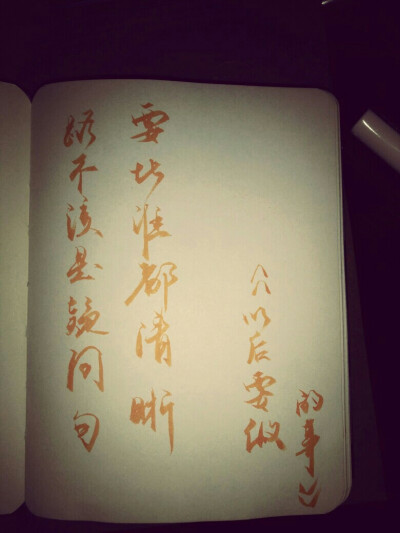 路不该是疑问句
要比谁都清晰
《以后要做
的事》